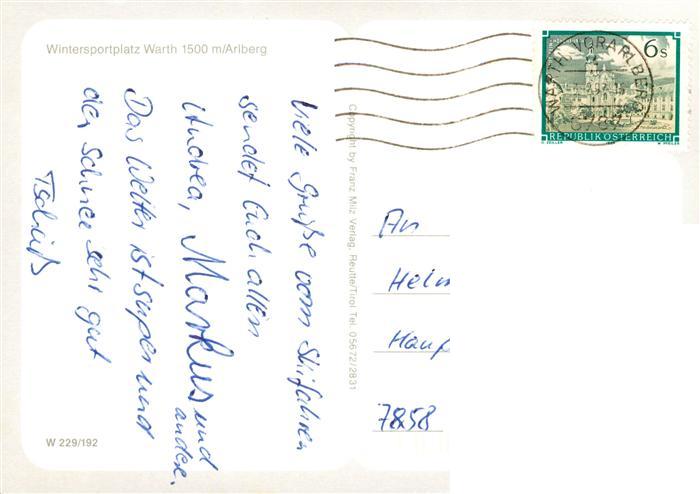 Wintersportplatz Warth 1500 m/Arlberg
Viele Grüße vom Skifahren
sendet Euch allen
Andrea, Markus und
andere.
Das Wetter ist super und
der Schnee sehr gut
Tschüß
W 229/192
Copyright by Franz Milz Verlag, Reutte/Tirol Tel. 05672/2831
6 s
REPUBLIK ÖSTERREICH
WARTH, VORARLBERG
An
Helm
Haup
7858